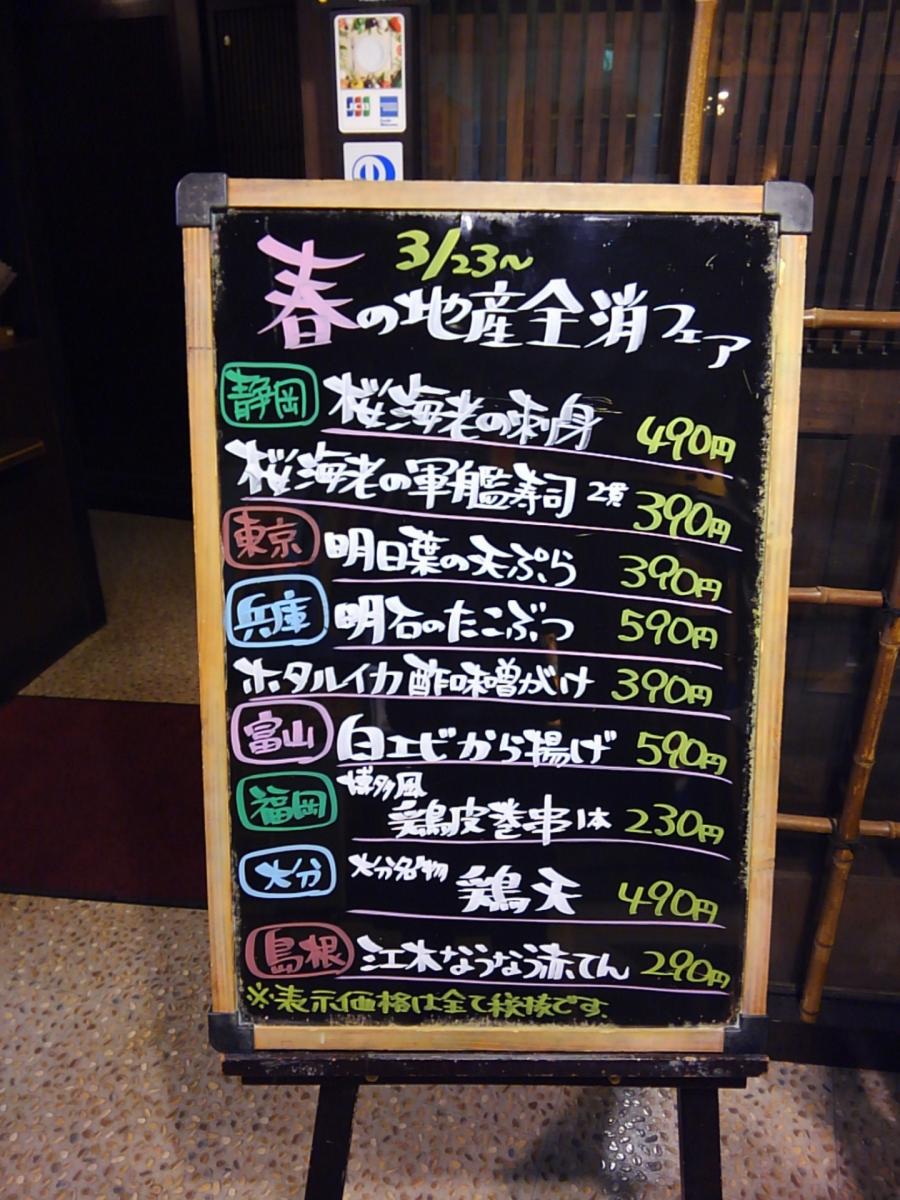 JCB
3/23～
春の地産全消フェア
静岡 桜海老の刺身 490円
桜海老の軍艦寿司 2貫 390円
東京 明日葉の天ぷら 390円
兵庫 明石のたこぶつ 590円
ホタルイカ酢味噌がけ 390円
富山 白エビから揚げ 590円
福岡 博多風
鶏皮巻串1本 230円
大分 大分名物 鶏天 490円
島根 江木なうなう赤てん 290円
※表示価格は全て税抜です。